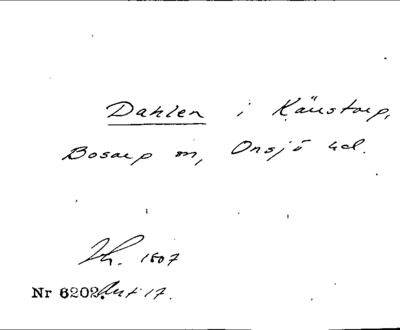 Dahlen i Känstorp,
Bosarp sn, Onsjö hd.
Jh. 1807
Nr 6202. Ant 17.